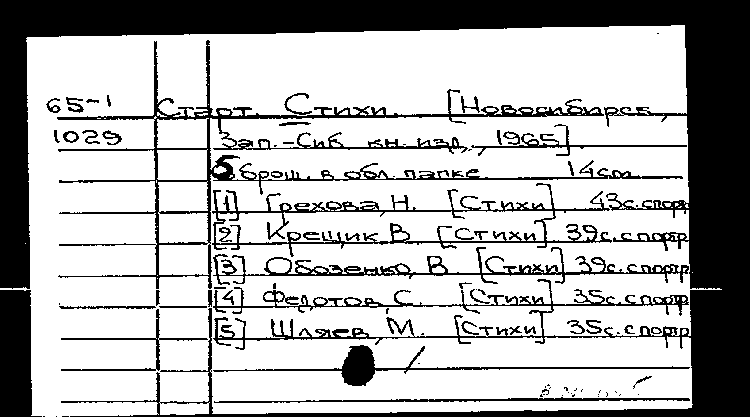 65-1 Старт. Стихи. [Новосибирск,
1029 Зап.-Сиб. кн. изд., 1965].
5 брош. в обл. папке 14см
[1] Грехова, Н. [Стихи] 43с. с портр
[2] Крещик, В. [Стихи] 39с. с портр
[3] Обозенко, В. [Стихи] 39с. с портр
[4] Федотов, С. [Стихи] 35с. с портр
[5] Шляев, М. [Стихи] 35с. с портр